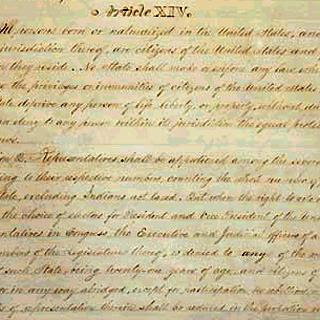 Article XIV.
All persons born or naturalized in the United States, and
jurisdiction thereof, are citizens of the United States and
they reside. No State shall make or enforce any law which
the privileges or immunities of citizens of the United States
State deprive any person of life, liberty, or property, without due
deny to any person within its jurisdiction the equal protec
laws.
Representatives shall be apportioned among the several
to their respective numbers, counting the whole number of
State, excluding Indians not taxed. But when the right to vote at
the choice of electors for President and Vice President of the United
entatives in Congress, the Executive and Judicial officers of a
members of the Legislature thereof, is denied to any of the
of such State, being twenty-one years of age, and citizens of
or in any way abridged, except for participation in rebellion, or
of representation therein shall be reduced in the proportion